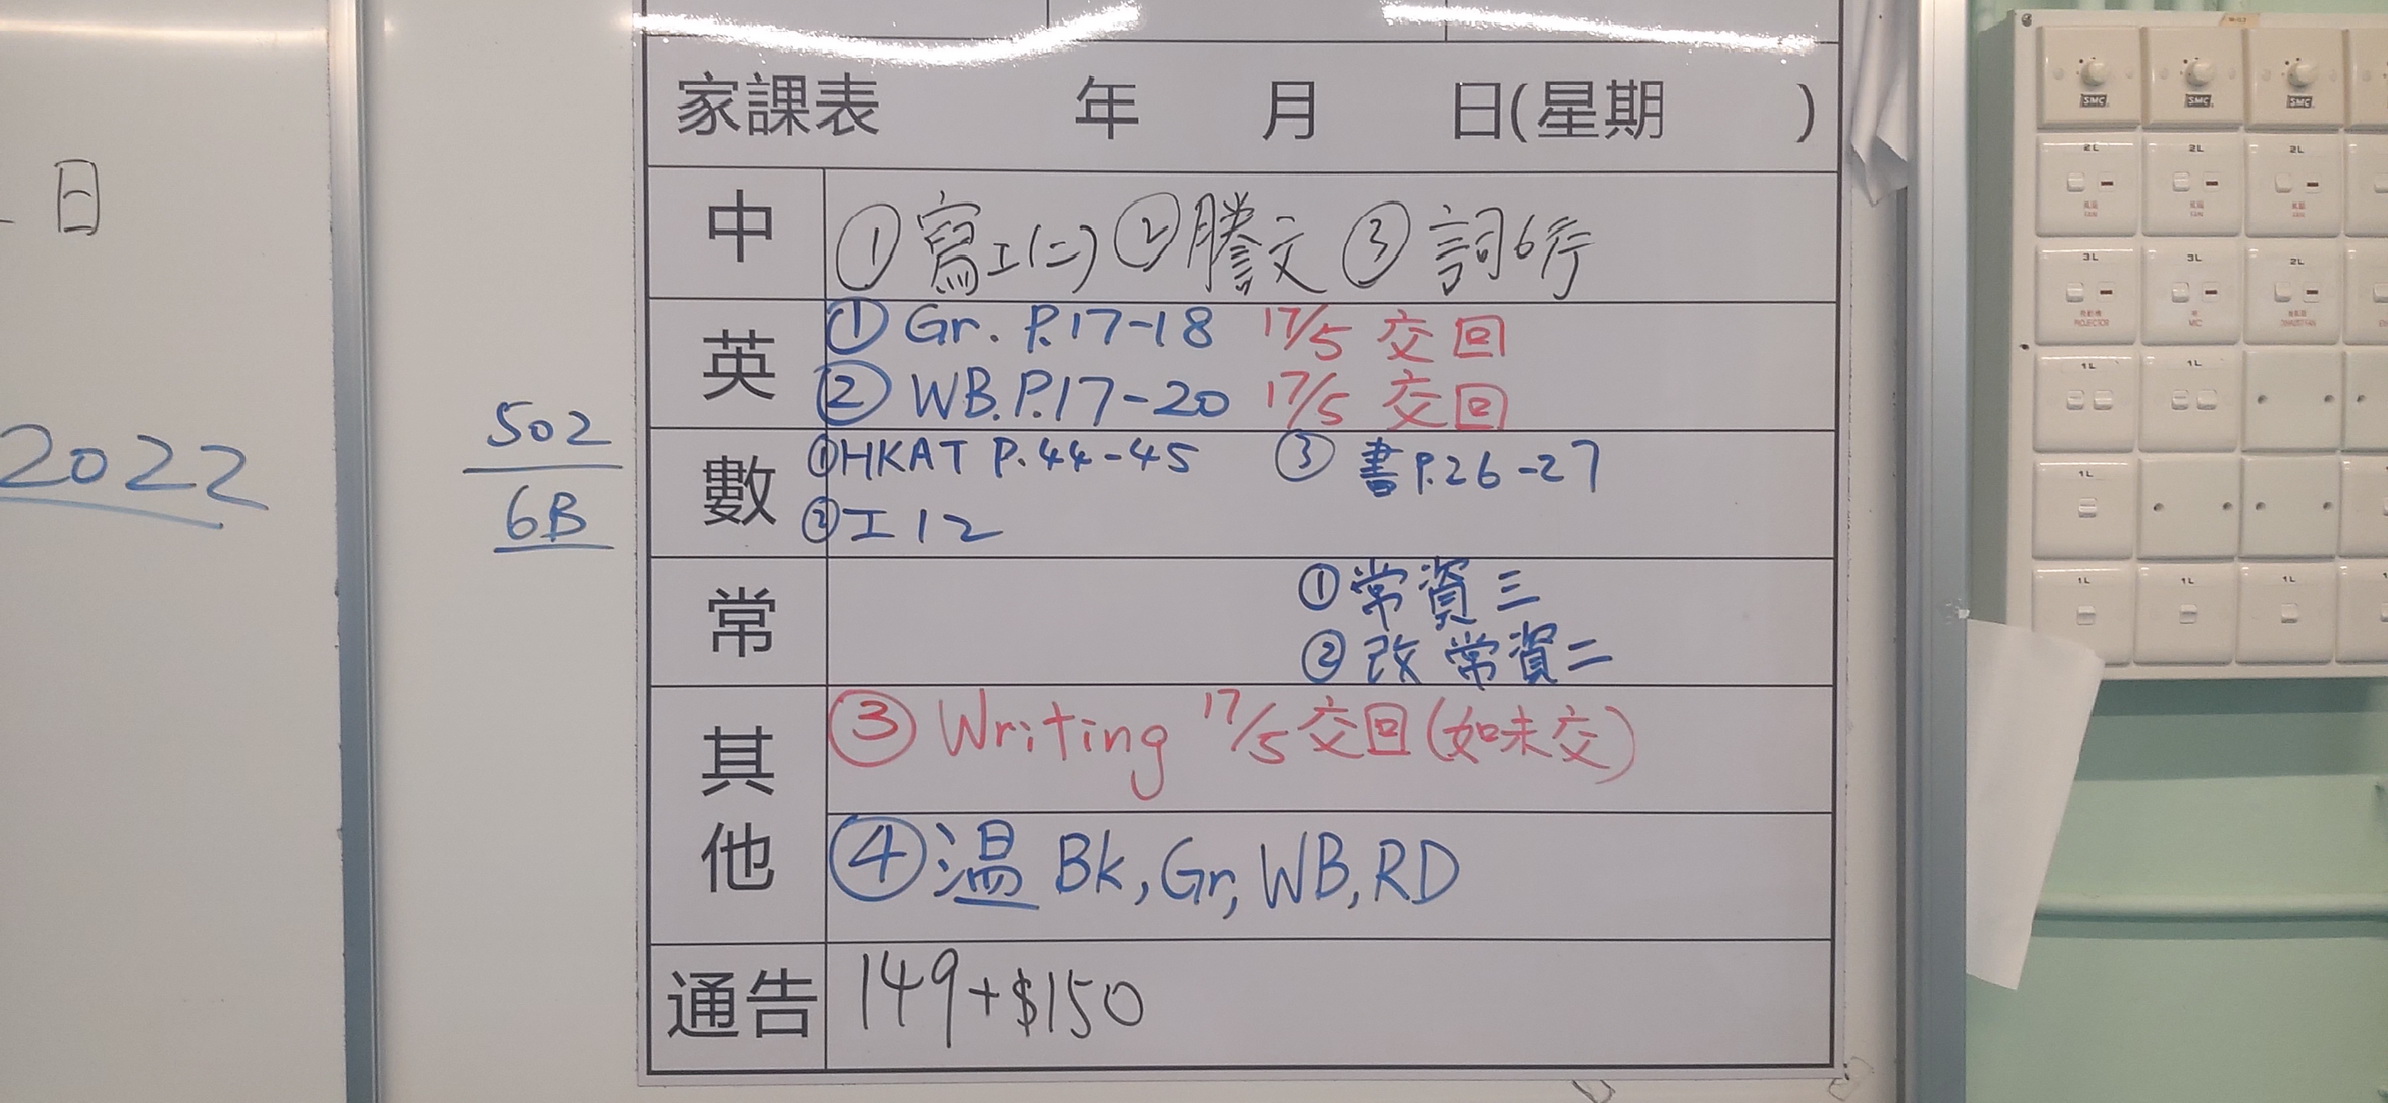 日
2022
502
6B
家課表 年 月 日(星期 )
中
① 寫工(二) ② 謄文 ③ 詞6行
英
① Gr. P.17-18 17/5 交回
② WB.P.17-20 17/5 交回
數
① HKAT P.44-45 ③ 書P.26-27
② 工12
常
① 常資三
② 改常資二
其他
③ Writing 17/5 交回(如未交)
④ 溫 Bk, Gr, WB, RD
通告
149+$150
SMC SMC SMC
2L 2L 2L
風扇 風扇 風扇
FAN FAN FAN
3L 3L 2L
PROJECTOR MIC
1L 1L
1L
1L 1L 1L